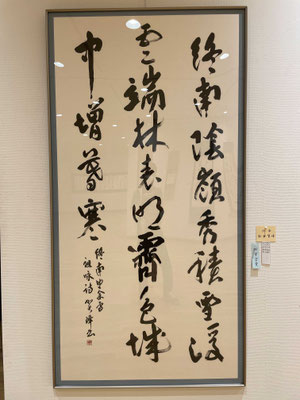 終南陰嶺秀積雪浮
雲端林表明霽色城
中增暮寒
終南望余雪
祖詠詩